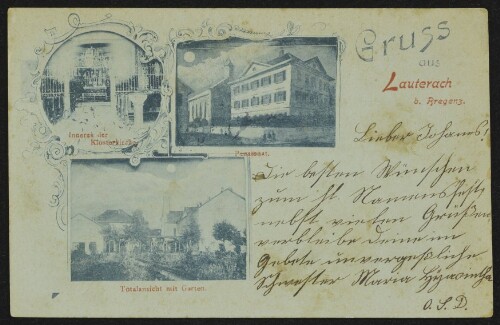 Gruss
aus
Lauterach
b. Bregenz.
Inneres der
Klosterkirche
Pensionat.
Totalansicht mit Garten.
Lieber Johannes!
Die besten Wünschen
zum hl. Namensfeste
nebst vielen Grüßen
verbleibe deine im
Gebete unvergeßliche
Schwester Maria Hyazintha
O. S. D.